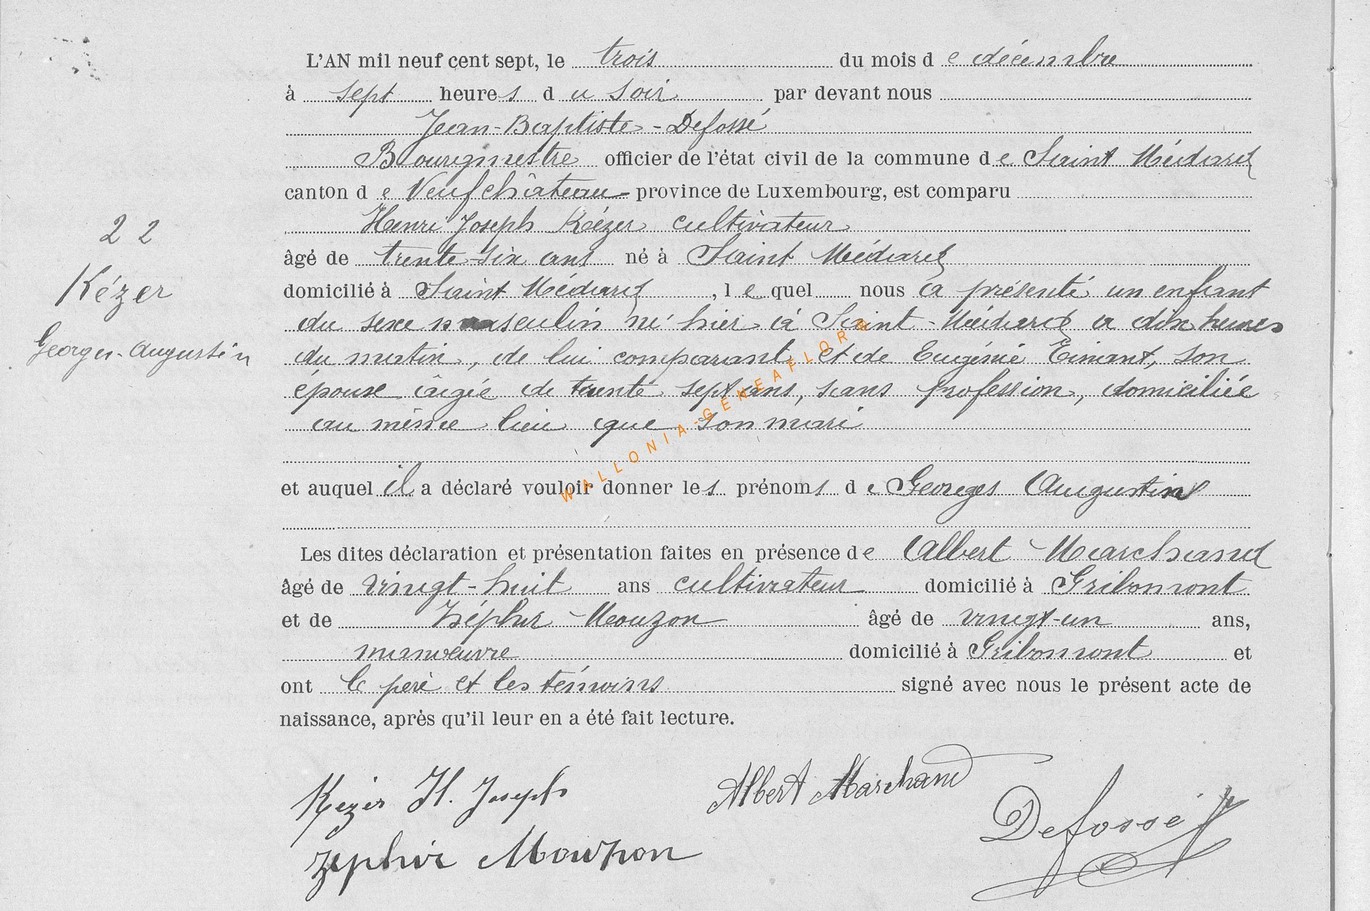 L'AN mil neuf cent sept, le trois du mois de décembre
à sept heures du soir par devant nous
Jean-Baptiste-Defossé
Bourgmestre officier de l'état civil de la commune de Saint Médard
canton de Neufchâteau province de Luxembourg, est comparu
Henri Joseph Kézer cultivateur
âgé de trente-six ans né à Saint Médard
domicilié à Saint Médard, lequel nous a présenté un enfant
du sexe masculin né hier à Saint-Médard a dix heures
du matin, de lui comparant, et de Eugénie Einant, son
épouse âgée de trente sept ans, sans profession, domiciliée
au même lieu que son mari
et auquel il a déclaré vouloir donner les prénoms de Georges Augustin
Les dites déclaration et présentation faites en présence de Albert Marchand
âgé de vingt-huit ans cultivateur domicilié à Gribomont
et de Zéphir Mouzon âgé de vingt-un ans,
manœuvre domicilié à Gribomont et
ont le père et les témoins signé avec nous le présent acte de
naissance, après qu'il leur en a été fait lecture.
22
Kézer
Georges-Augustin
Kézer H. Joseph
Albert Marchand
Defossé
Zéphir Mouzon
WALLONIA-GENEAFLORA